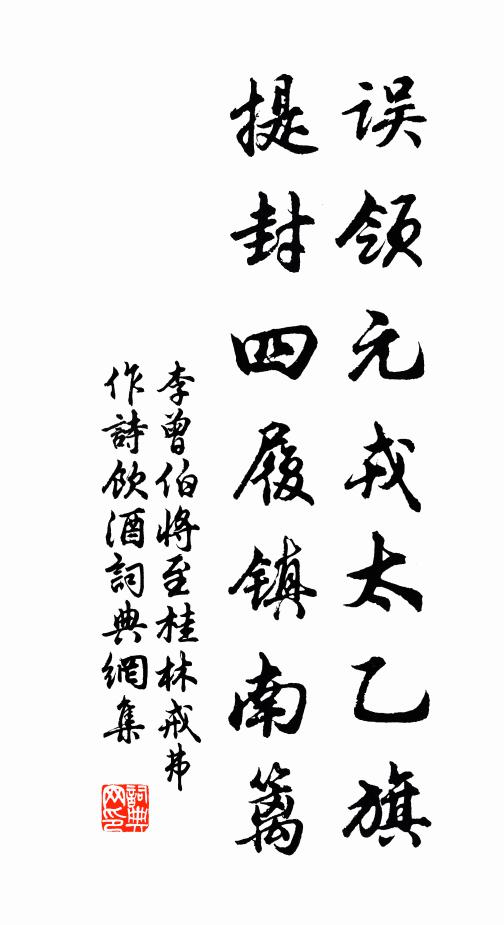 误领元戎太乙旗
提封四履镇南篱
李曾伯将至桂林戒弗
作詩飲酒詞典網集
詞典
网印